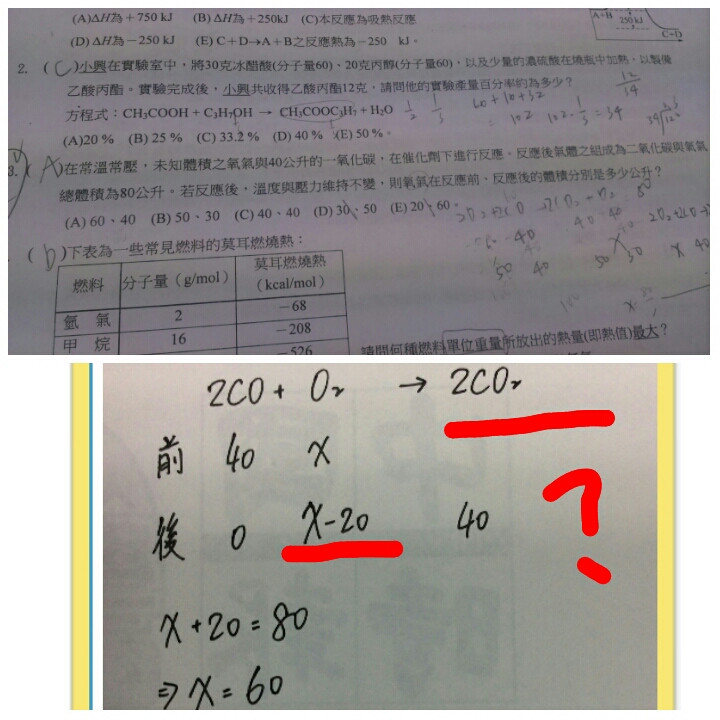 (A)ΔH為+750 kJ (B) ΔH為+250kJ (C)本反應為吸熱反應
(D) ΔH為-250 kJ (E) C+D→A+B之反應熱為-250 kJ。
A+B 250 kJ C+D
2. (C)小興在實驗室中,將30克冰醋酸(分子量60)、20克丙醇(分子量60),以及少量的濃硫酸在燒瓶中加熱,以製備
乙酸丙酯。實驗完成後,小興共收得乙酸丙酯12克,請問他的實驗產量百分率約為多少?
方程式:CH3COOH + C3H7OH → CH3COOC3H7 + H2O
1/2 1/3 60+10+32
= 102 102·1/3=34
12/34
(A)20 % (B) 25 % (C) 33.2 % (D) 40 % (E) 50 %。
3. (A)在常溫常壓,未知體積之氧氣與40公升的一氧化碳,在催化劑下進行反應。反應後氣體之組成為二氧化碳與氧氣
總體積為80公升。若反應後,溫度與壓力維持不變,則氧氣在反應前、反應後的體積分別是多少公升?
(A) 60、40 (B) 50、30 (C) 40、40 (D) 30、50 (E) 20、60。
(b)下表為一些常見燃料的莫耳燃燒熱:
燃料 分子量(g/mol) 莫耳燃燒熱(kcal/mol)
氫 氣 2 -68
甲 烷 16 -208
-526
請問何種燃料單位重量所放出的熱量(即熱值)最大?
2CO + O2 → 2CO2
前 40 X
後 0 X-20 40
?
X+20=80
⇒ X=60